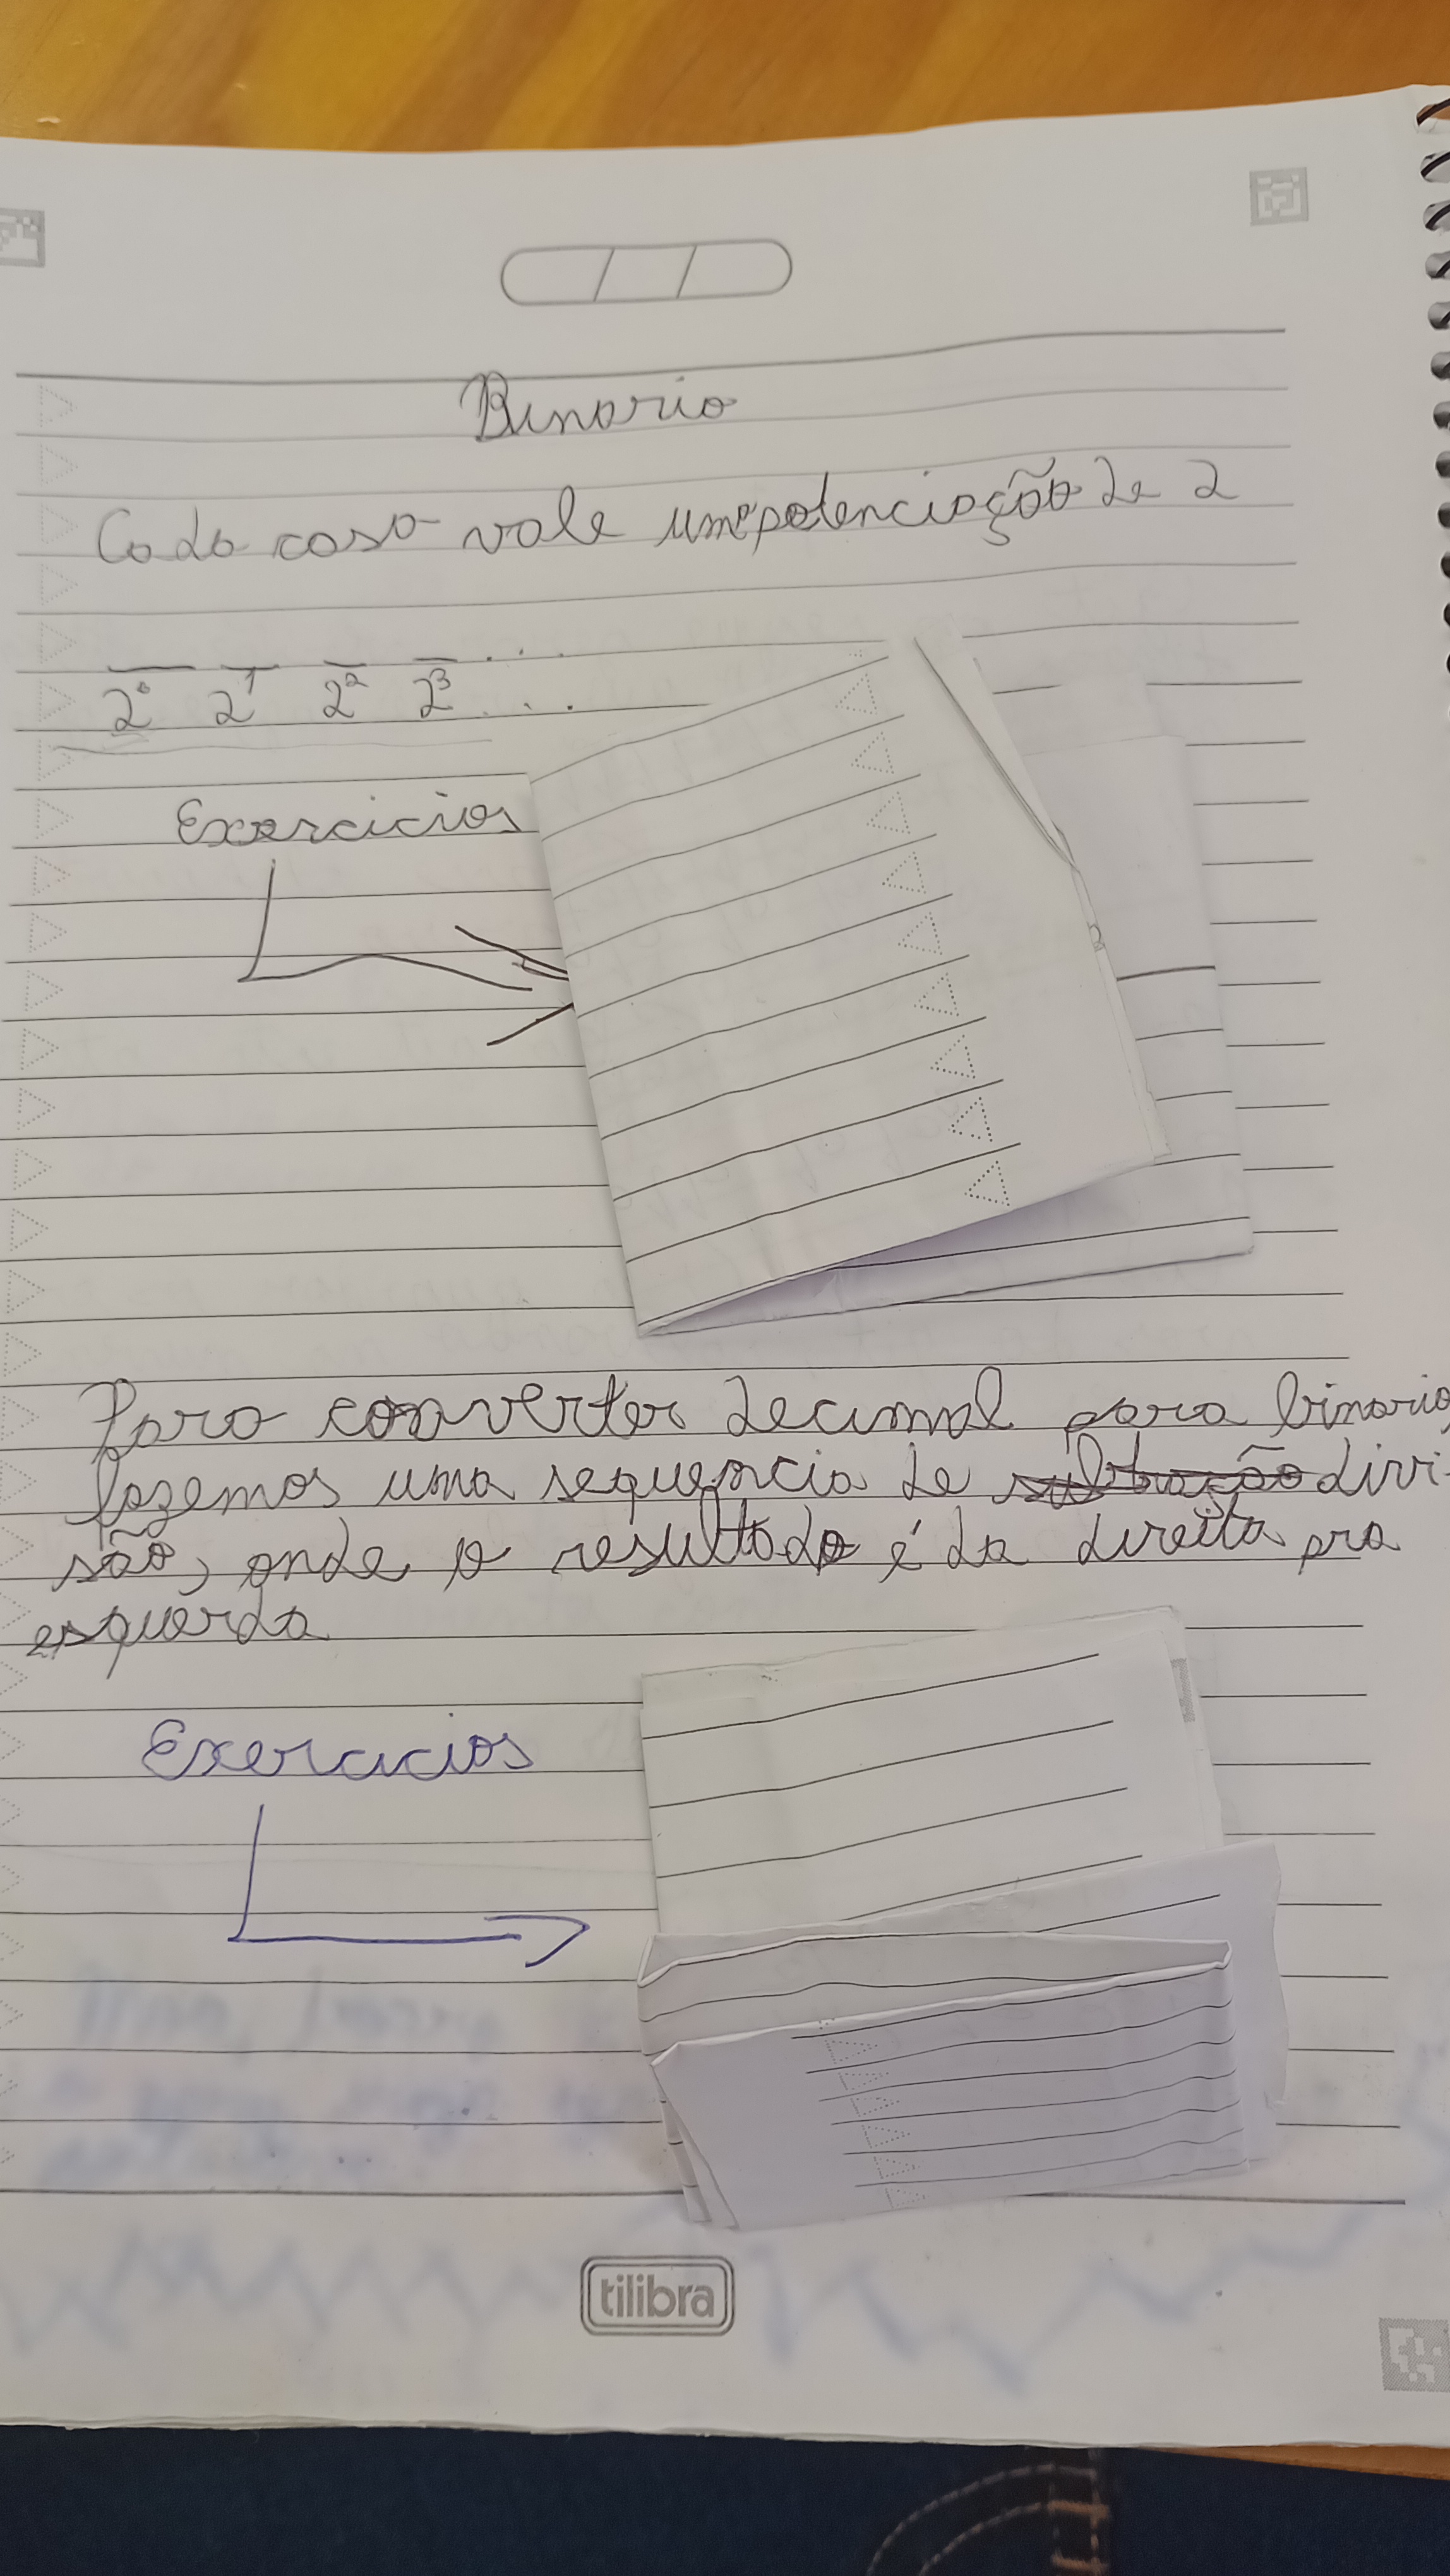 Binario
Cada casa vale uma potenciação de 2
2⁰ 2¹ 2² 2³ ...
Exercicios
Para converter decimal para binario,
fazemos uma sequencia de subtração divi-
são, onde o resultado é da direita pra
esquerda
Exercicios
tilibra